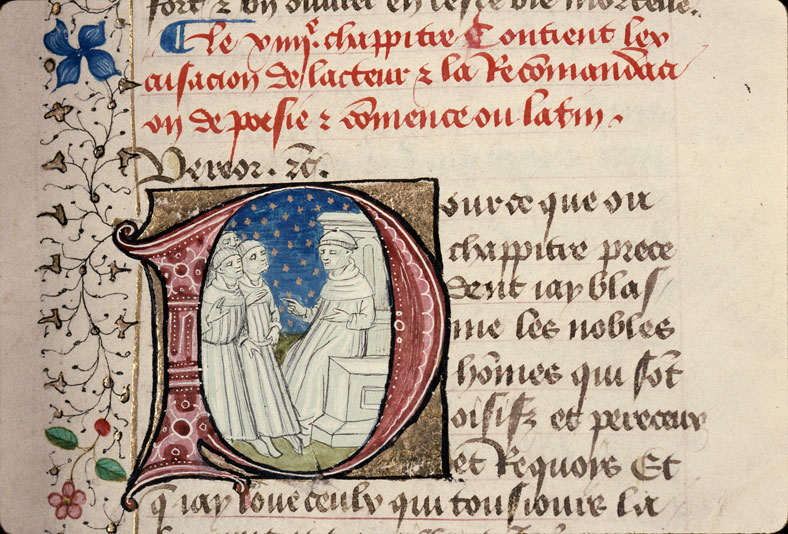 fort z
en ceste vie mortelle.
Le viiiᵉ. chappitre Contient lex
cusacion de lacteur z la Recōmandaci
on de poesie z cōmence ou latin.
Vereor. zc̄.
Pource que ou
chappitre prece
dent iay blas
me les nobles
hōmes qui sōt
oisifz et pereceux
et Requoys Et
q iay loue ceulx qui tousiours la